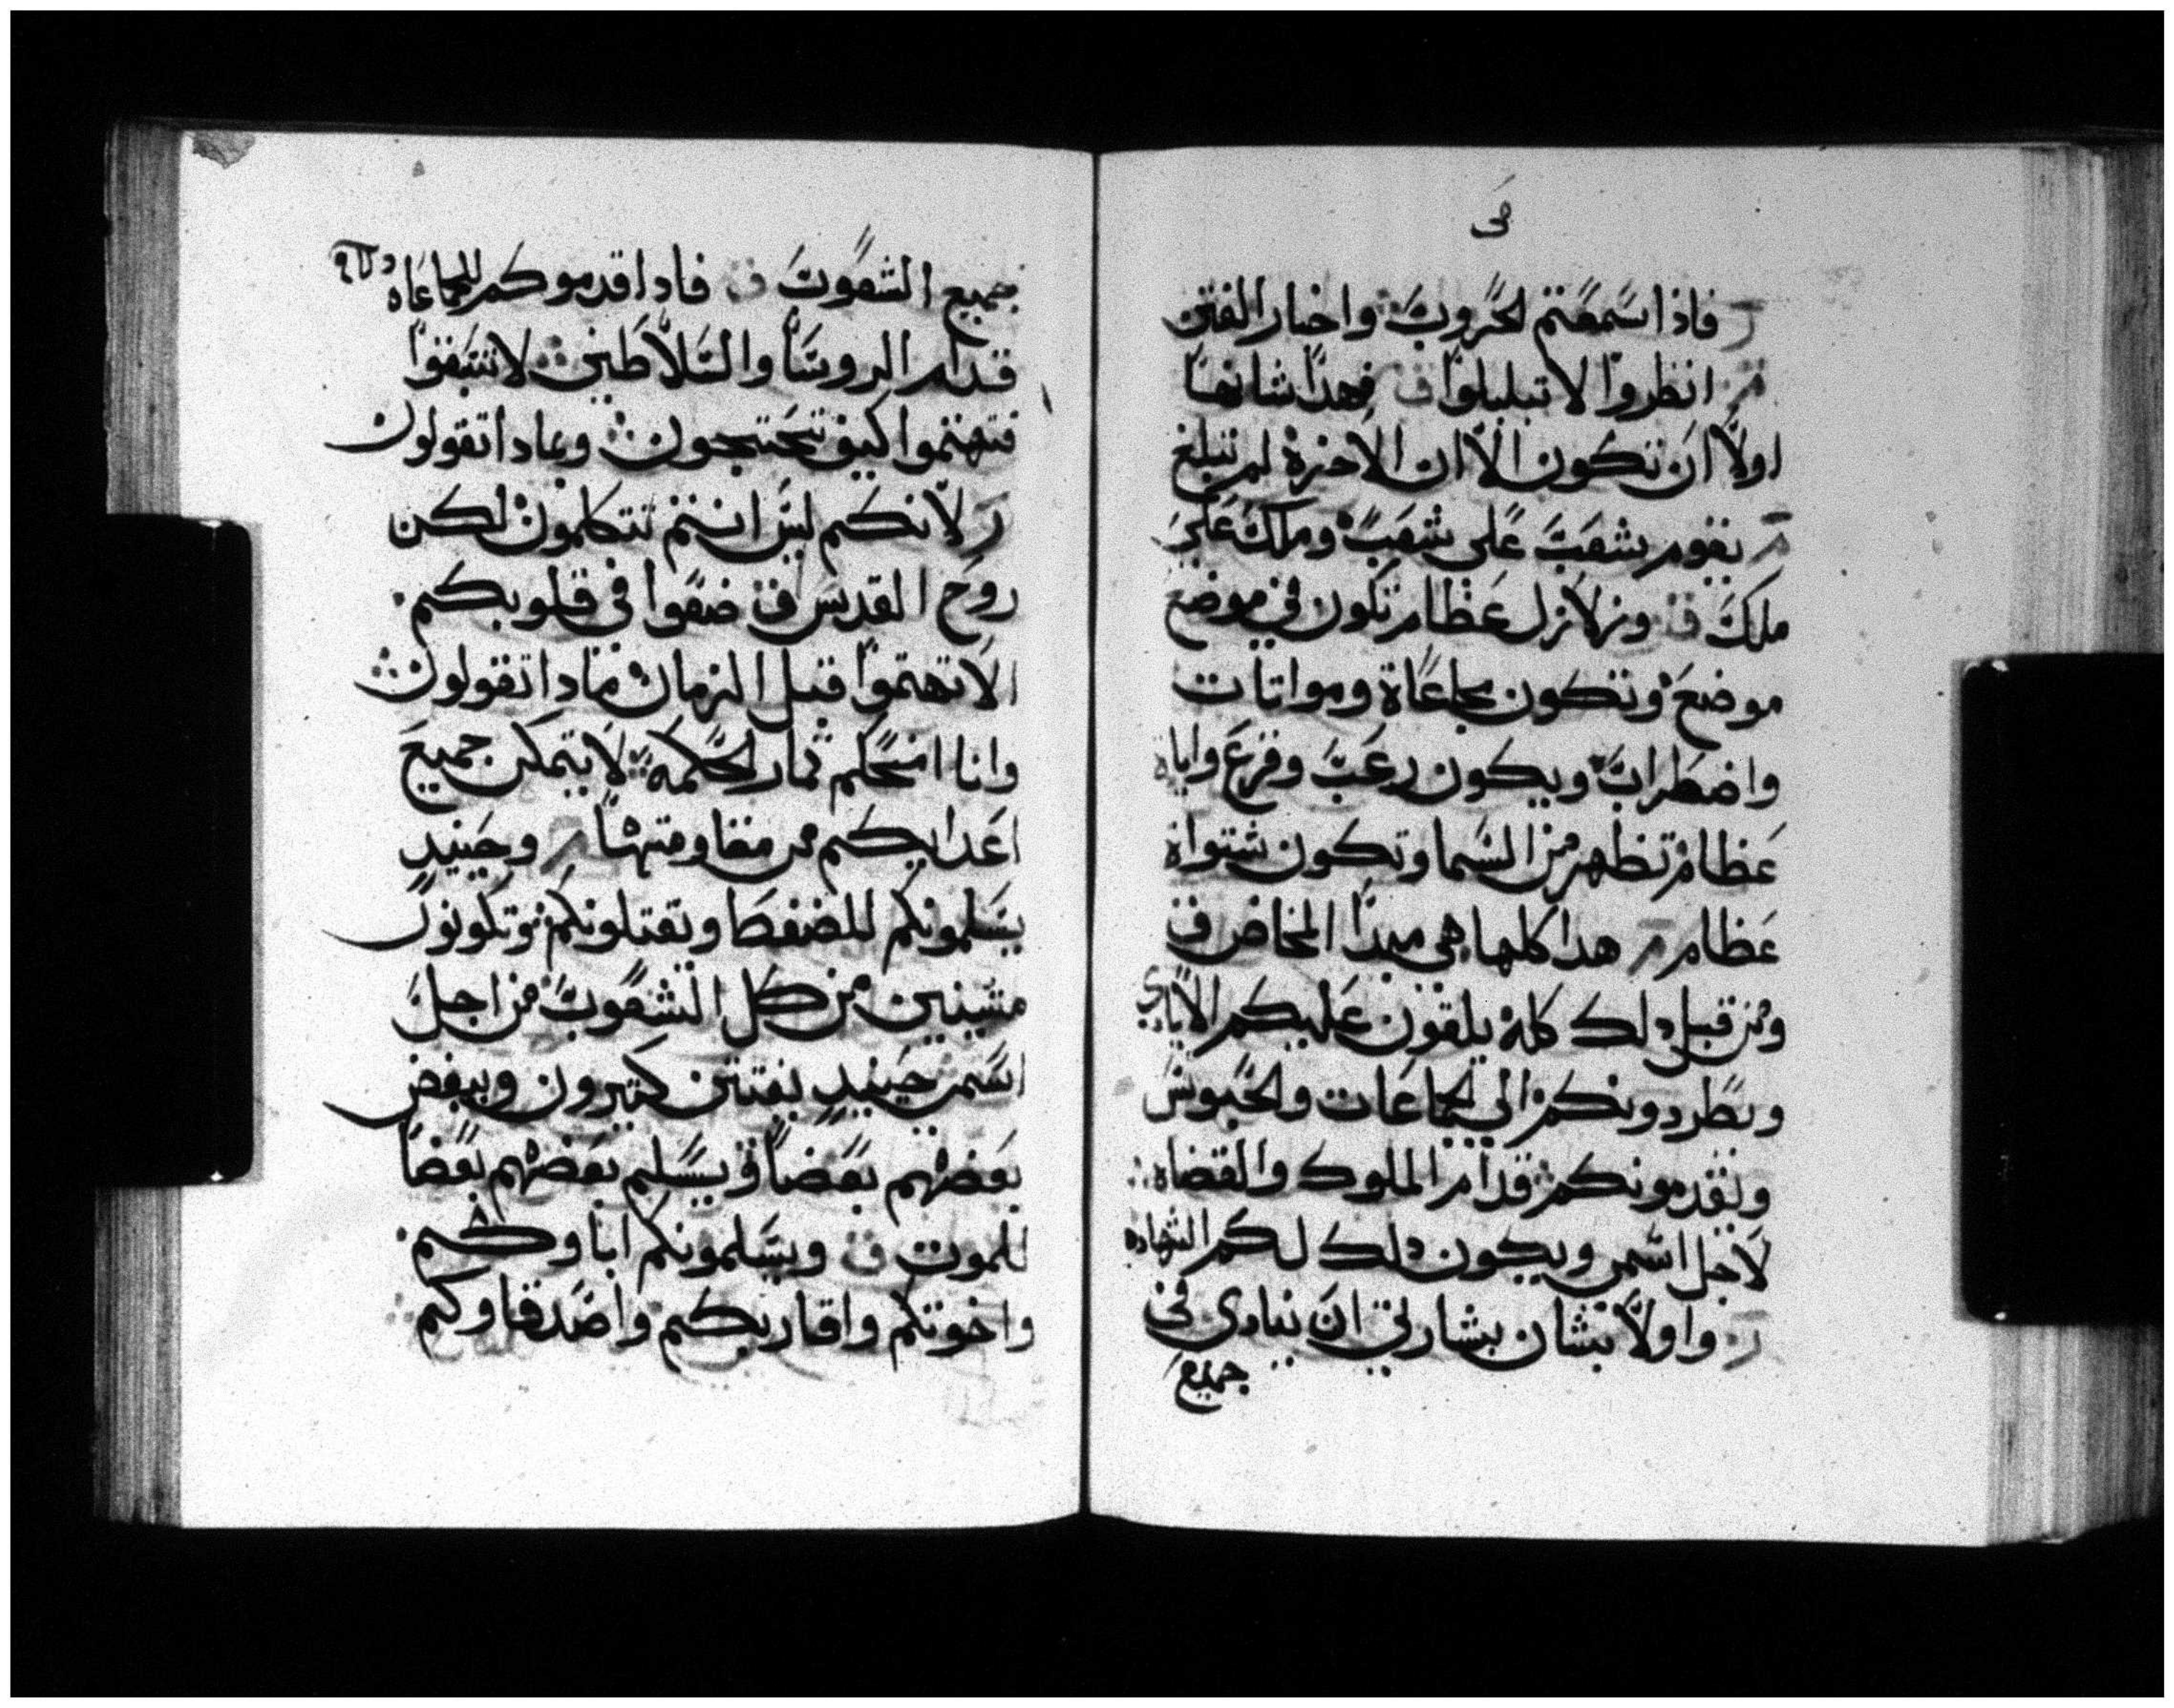 فاذا سمعتم لحروب واخبار الفتن
انظروا لا تبلبلوا ف فهدا شانها
اولا ان تكون الا ان الاخرة لم تبلغ
يقوم شعب على شعب وملك على
ملك ف وزلازل عظام تكون في موضع
موضع وتكون مجاعاة ومواتات
واضطراب ويكون رعب وفزع واياة
عظام تظهر من السما وتكون شتواة
عظام هدا كلها هي مبدا المخاض ف
ومن قبل دلك كله يلقون عليكم الايادي
وبطردونكم الى لجماعات والحبوس
ونقدمونكم قدام الملوك والقضاه
لاجل اسمي ويكون دلك لكم الشهاده
واولا بتشان ببشارتي ان ينادى في
جميع
جميع الشعوب ف فادا قدموكم للجماعاه
قدام الروسا والسلاطين لا تتبقوا
فتهتموا كيف تحتجون وبمادا تقولون
لانكم ليس انتم تتكلمون لكن
روح القدس ف ضعوا في قلوبكم
الا تهتموا قبل الزمان بمادا تقولون
وانا امنحكم ثمار لحكمة لا يتمكن جميع
اعدايكم من مقاومتها وحينيد
يسلمونكم للضغطا وتقتلونكم وتكونون
مشينين من كل الشعوب من اجل
اسمي حينيد يفتتن كتيرون ويبغض
بعضهم بعضا ف يسلم بعضهم بعضا
للموت ف ويسلمونكم اباوكم
واخوتكم واقاربكم واصدقاوكم